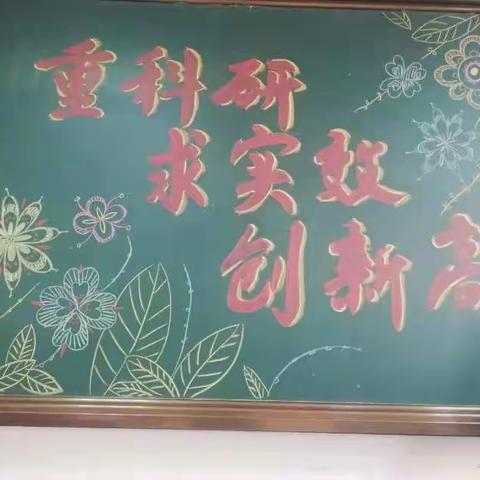 重科研
求实效
创新高